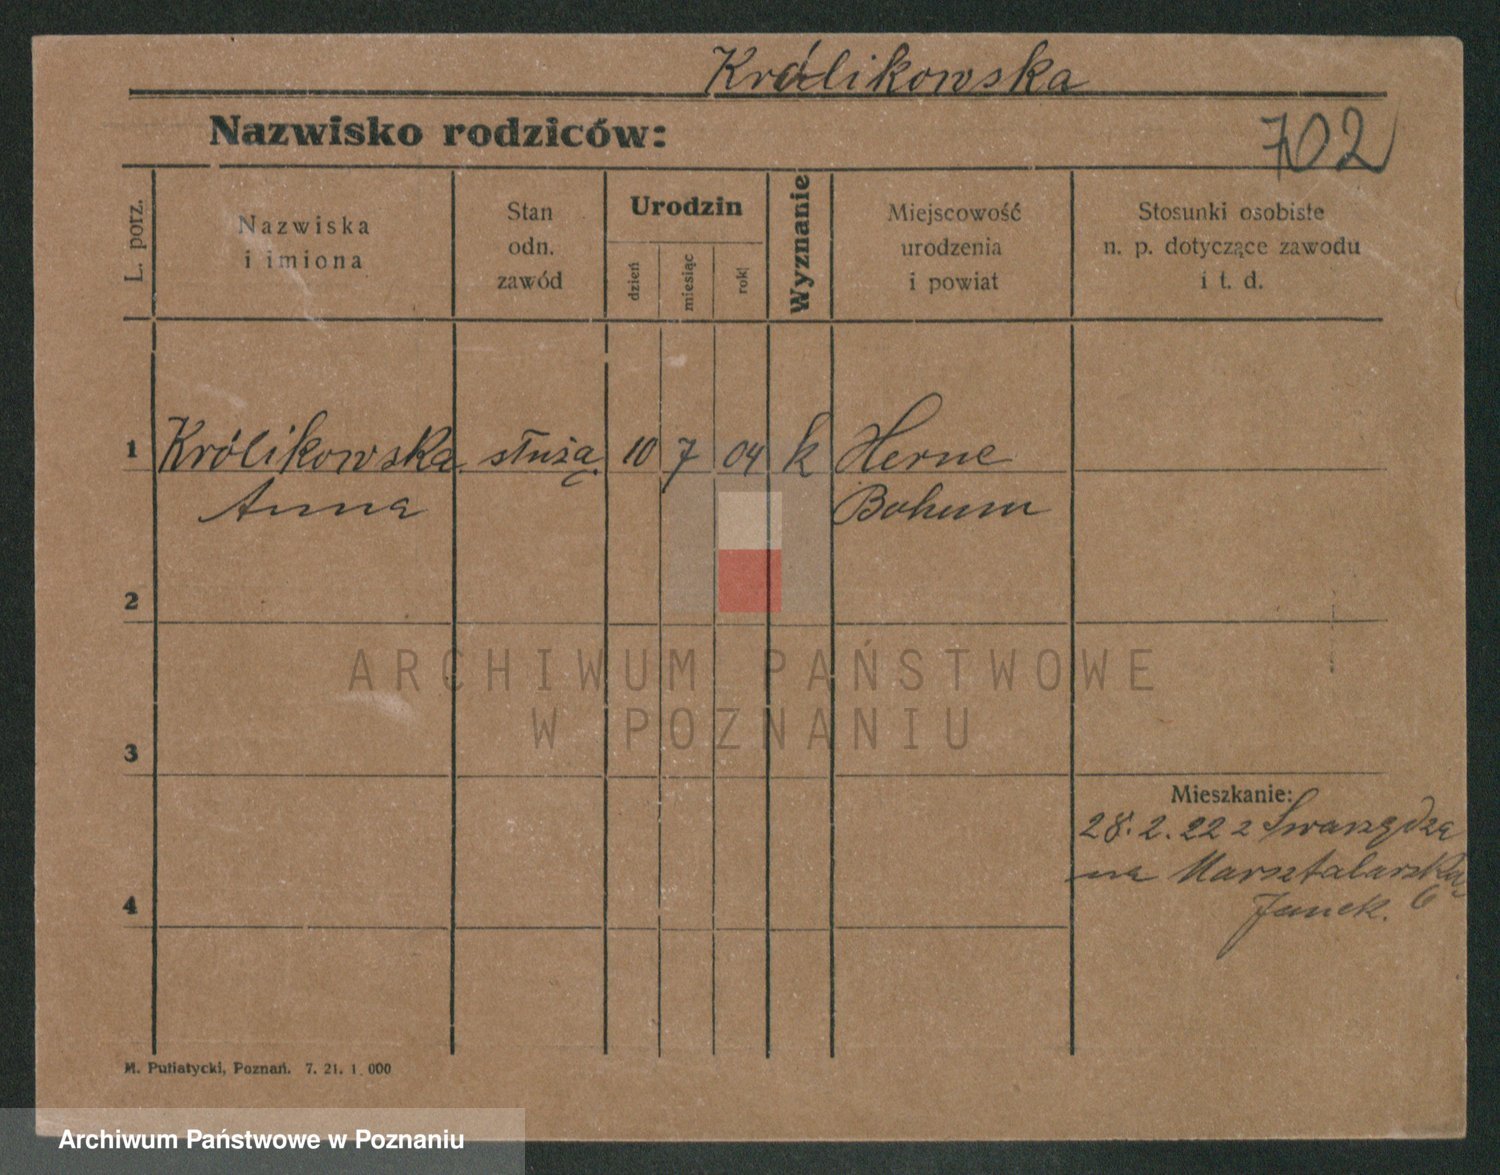 Królikowska
Nazwisko rodziców:
702
L. porz.
Nazwiska
i imiona
Stan
odn.
zawód
Urodzin
dzień
miesiąc
rok
Wyznanie
Miejscowość
urodzenia
i powiat
Stosunki osobiste
n. p. dotyczące zawodu
i t. d.
1 Królikowska służą. 10 7 04 k Herne
Anna Bohum
2
3
Mieszkanie:
28.2.22 z Swarzędza
na Marsztalarską
6
4
M. Putiatycki, Poznań. 7. 21. 1 000
ARCHIWUM PAŃSTWOWE
W POZNANIU
Archiwum Państwowe w Poznaniu